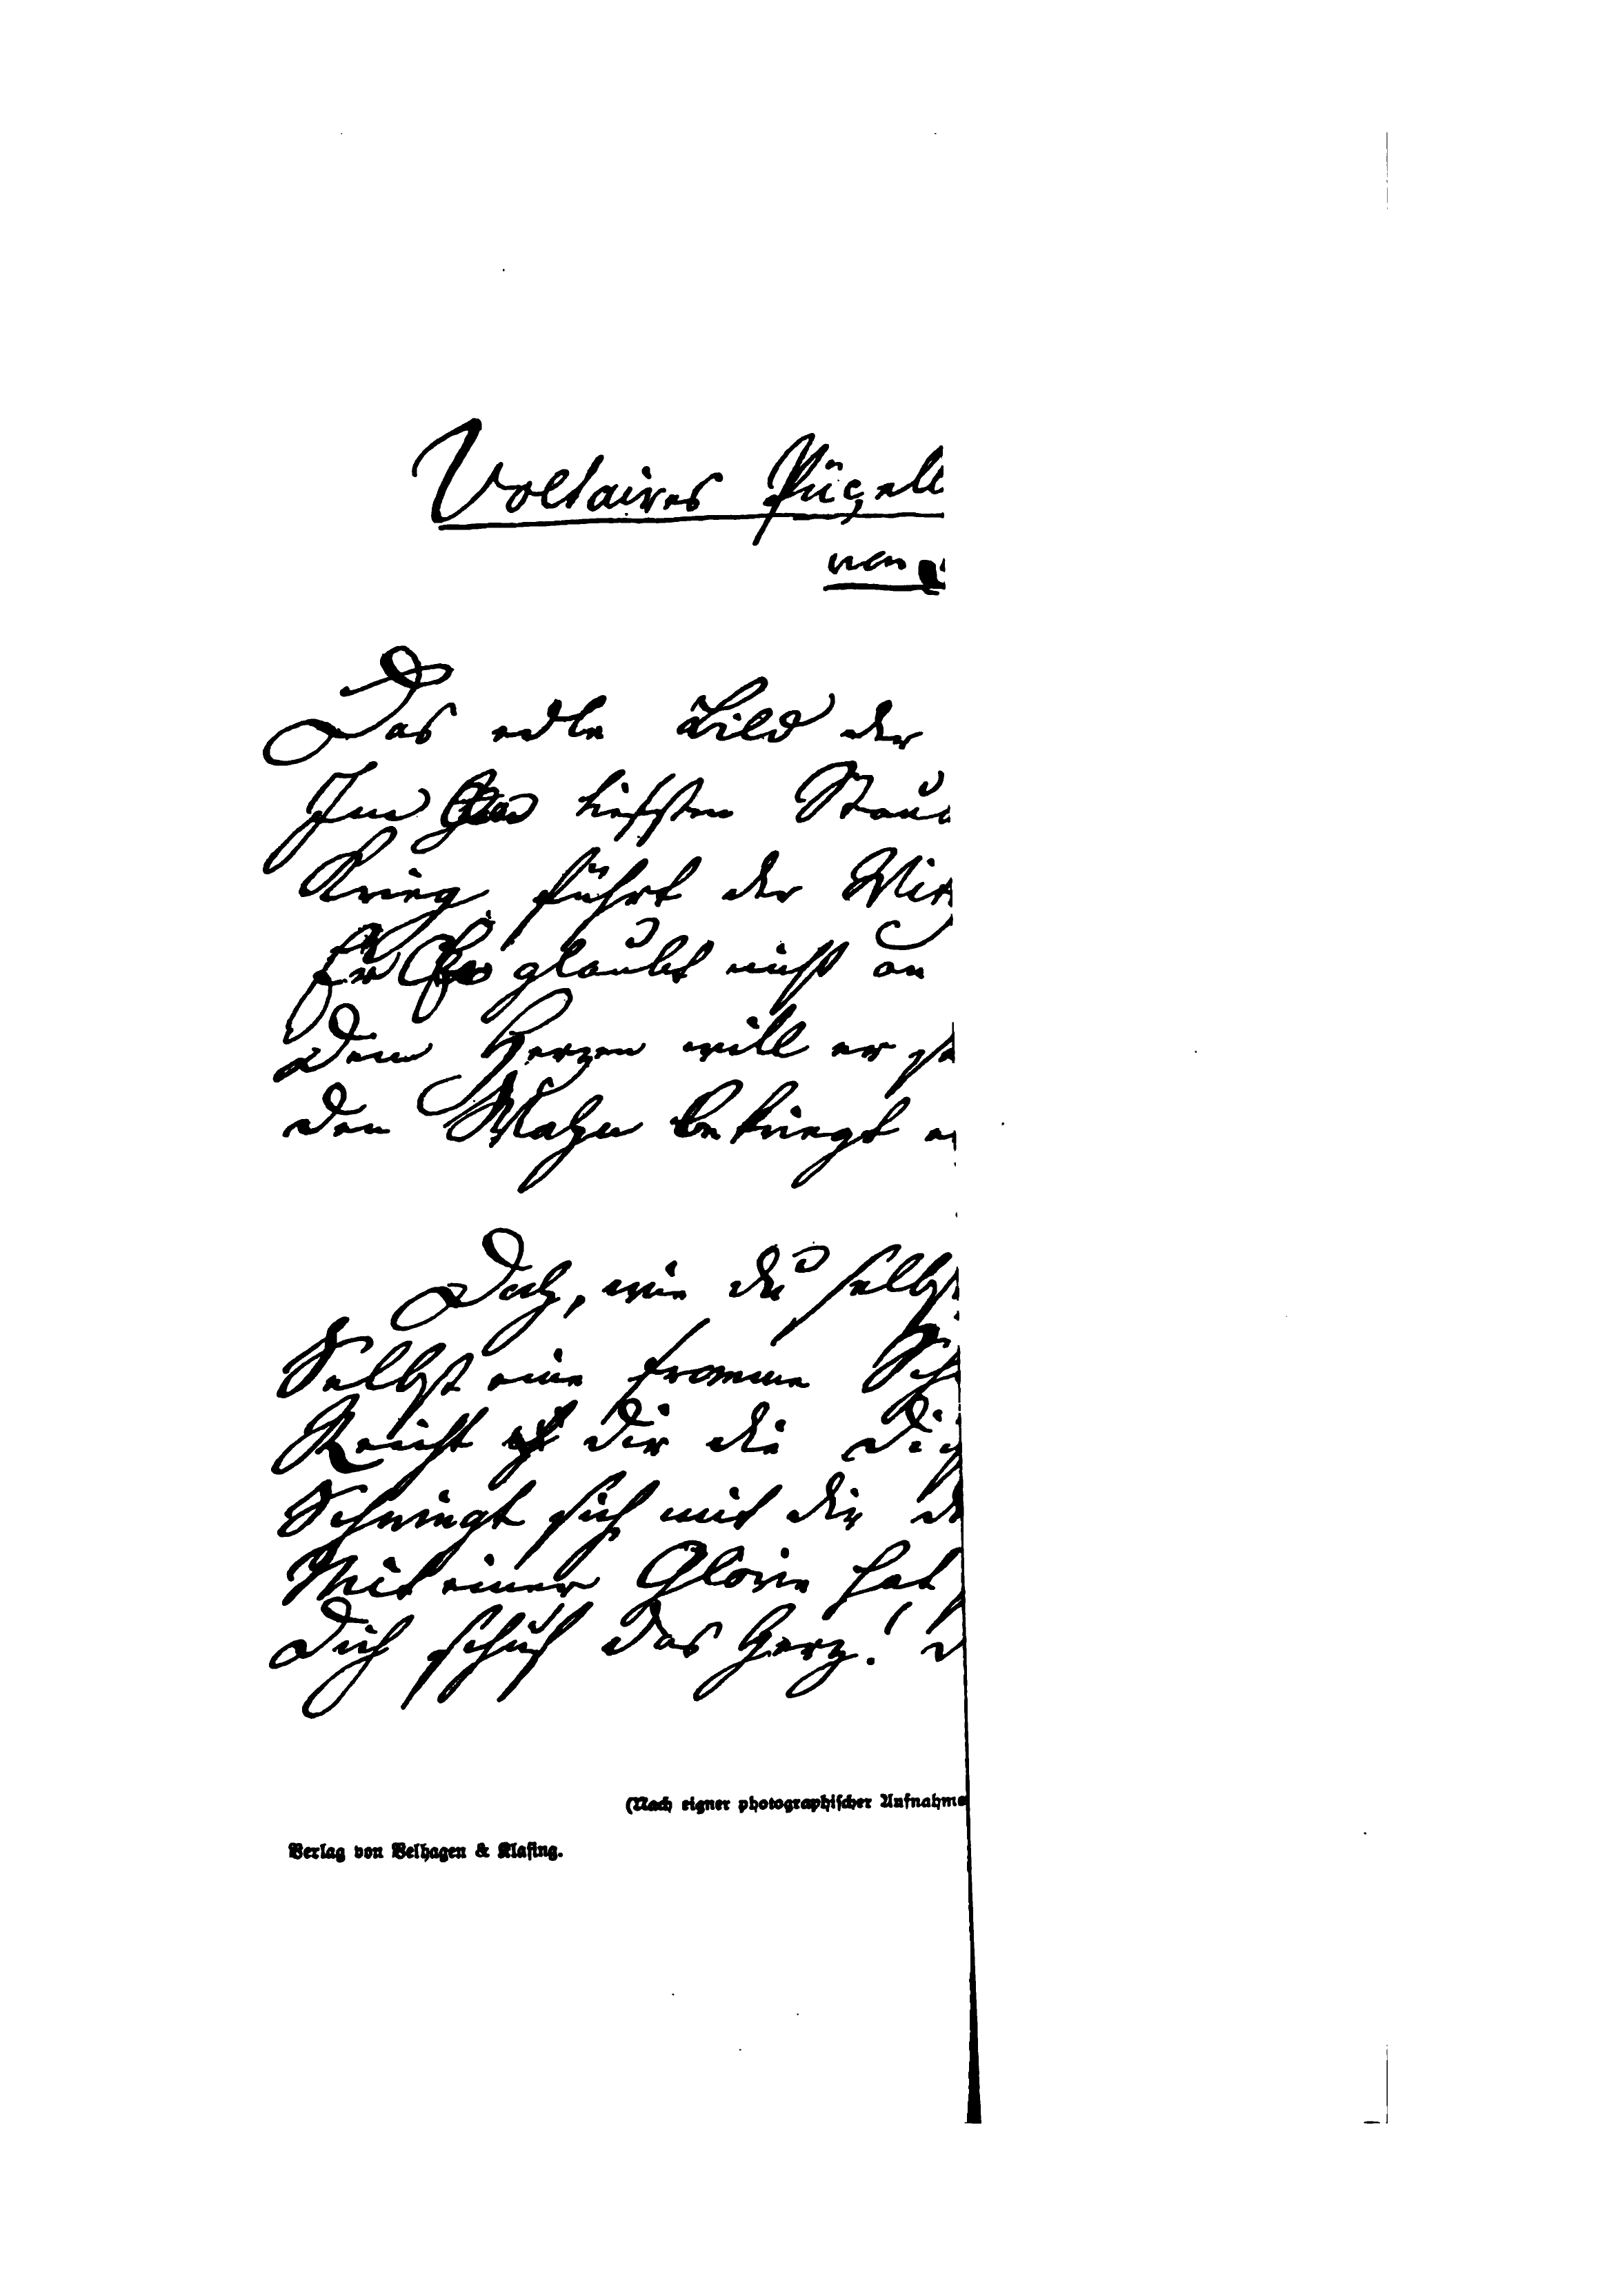 Voltaires Püçell
von
Das edle Bild der
Im tiefsten Stau
Krieg führt der Wit
Er glaubt nicht an
Dem Herzen will er
Den Wahn bekriegt er
Doch, wie du selbst
Selbst eine fromme Sch
Reicht dir die Dich
Schwingt sich mit dir
Mit einer Glorie hat
Dich schuf das Herz!
(Nach eigner photographischer Aufnahme
Verlag von Velhagen & Klasing.